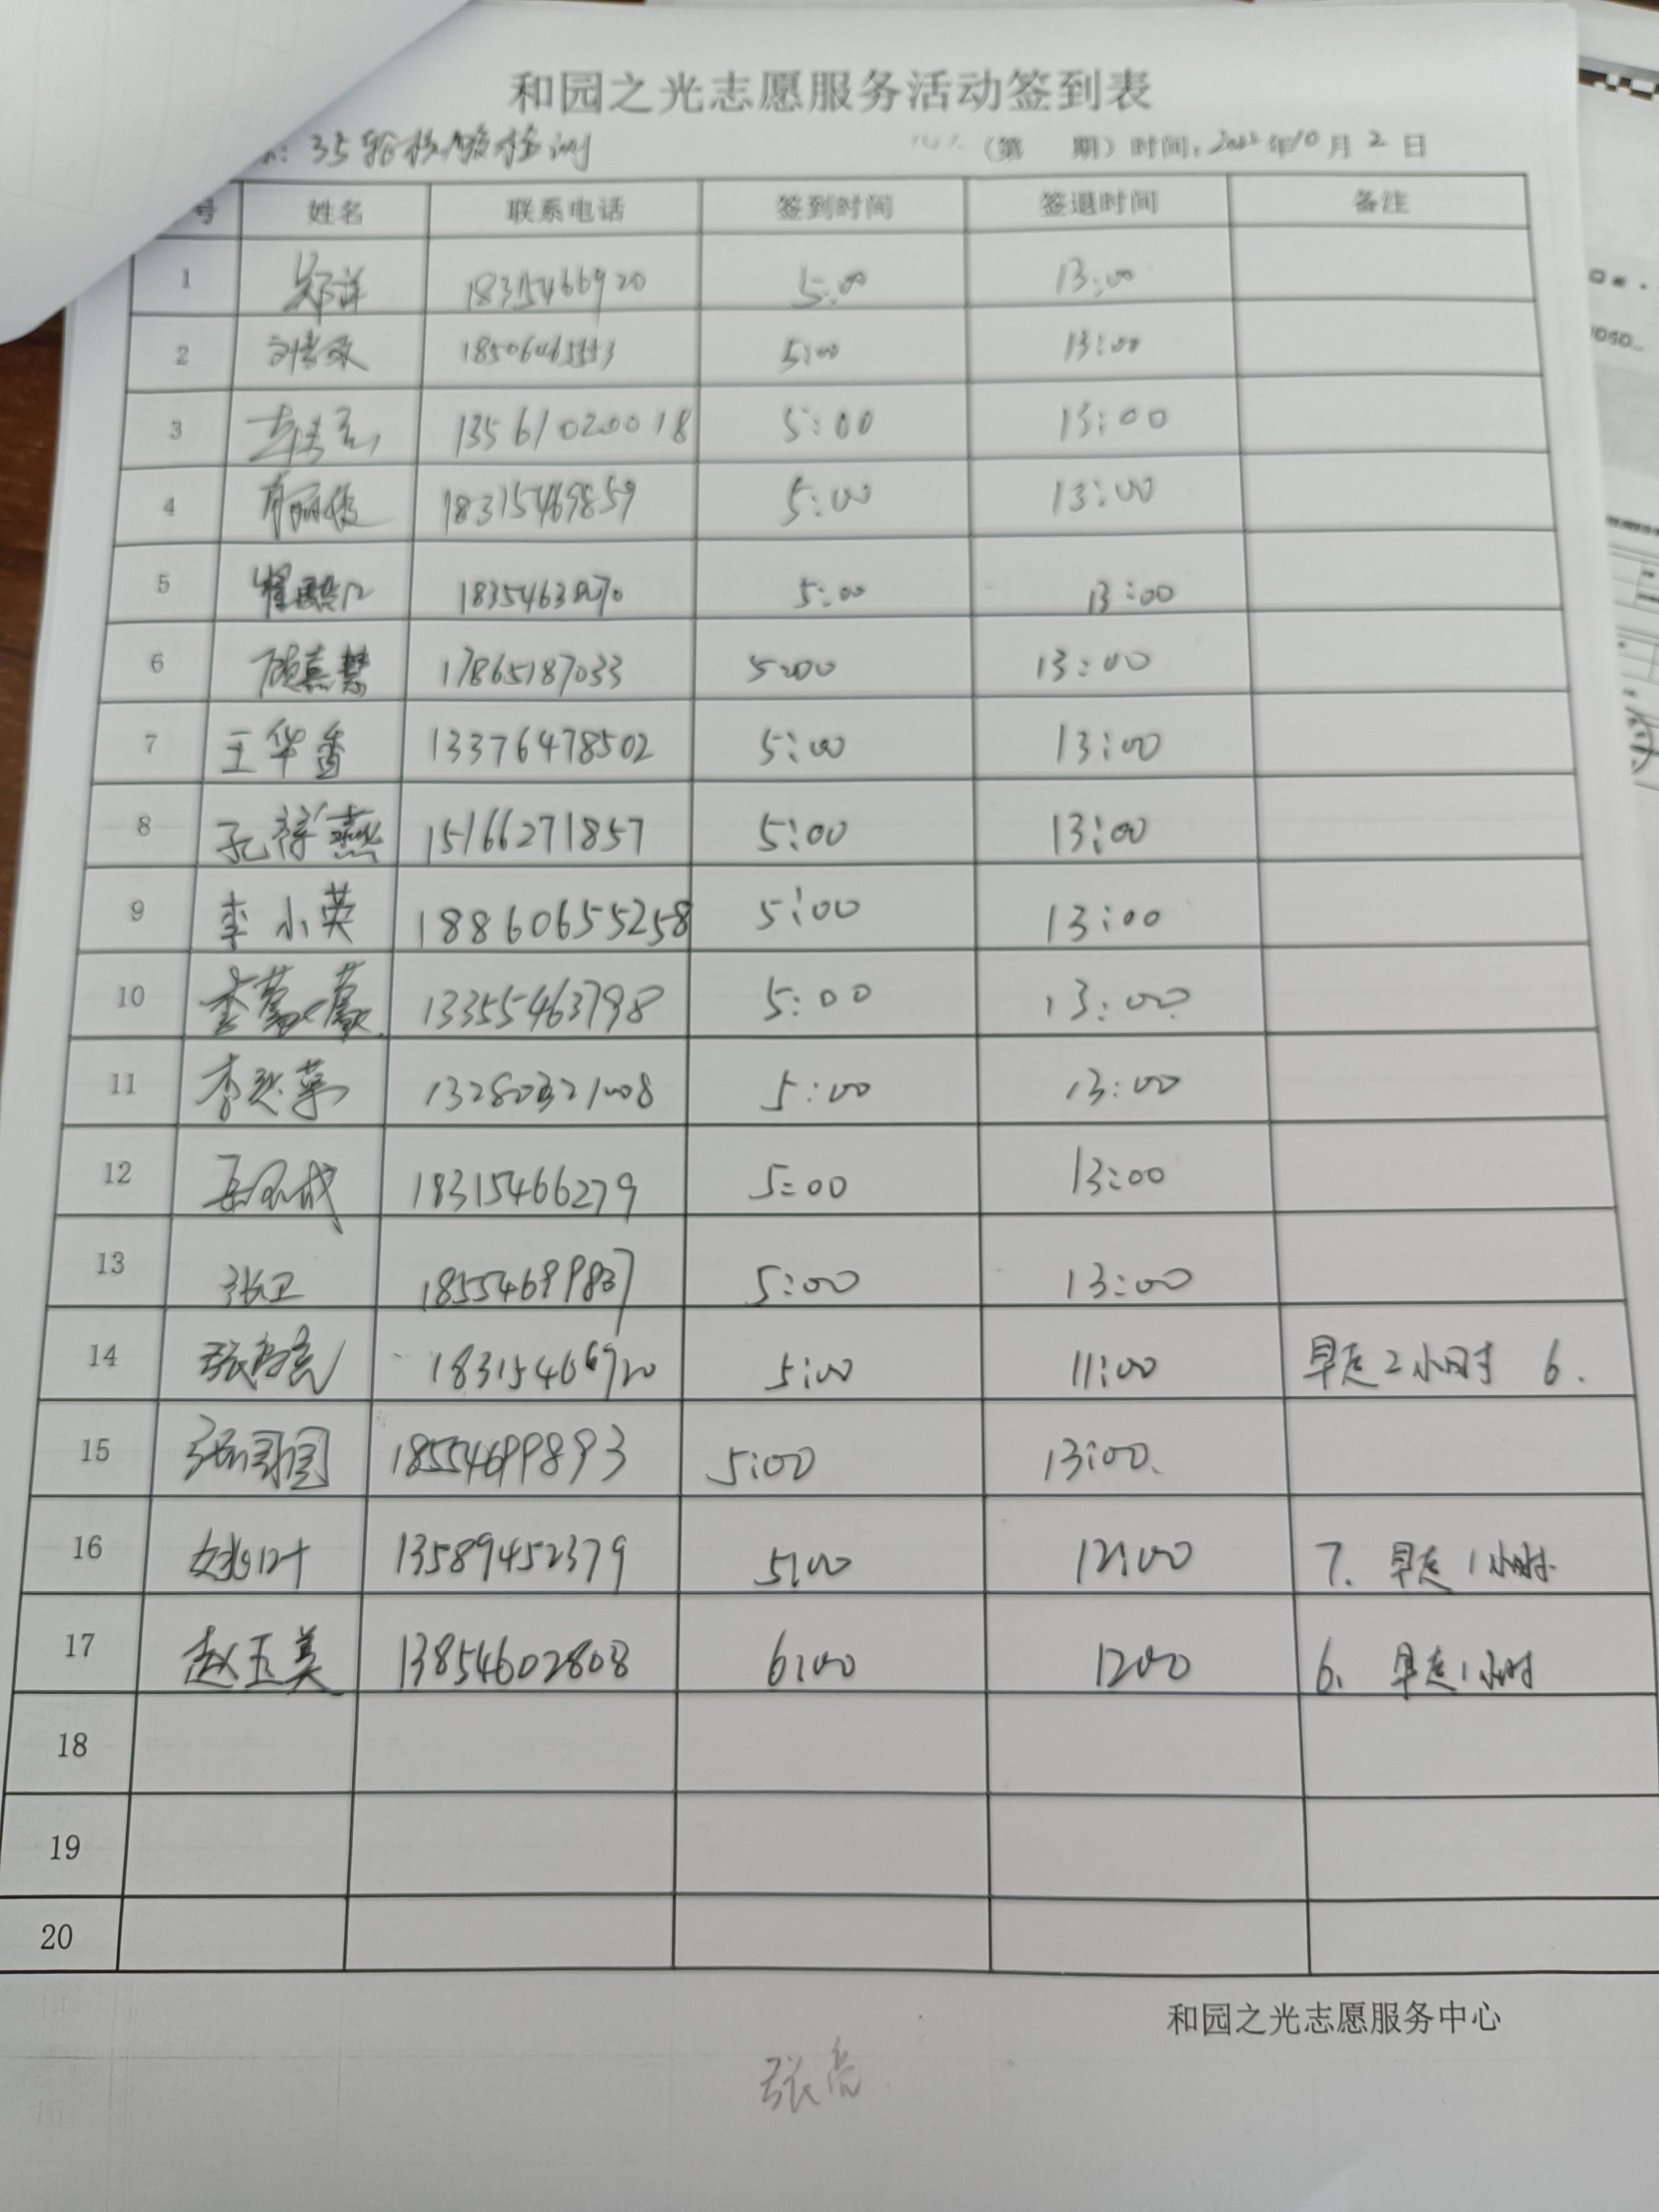 和园之光志愿服务活动签到表
35轮核酸检测 （第 期）时间：2022年10月2日
号 姓名 联系电话 签到时间 签退时间 备注
1 郑洋 18315466920 5:00 13:00
2 5:00 13:00
3 13561020018 5:00 13:00
4 18315469859 5:00 13:00
5 5:00 13:00
6 顾嘉慧 17865187033 5:00 13:00
7 王华香 13376478502 5:00 13:00
8 孔祥燕 15166271857 5:00 13:00
9 李小英 18860655258 5:00 13:00
10 李蒙蒙 13355463798 5:00 13:00
11 5:00 13:00
12 18315466279 5:00 13:00
13 张卫 18554699837 5:00 13:00
14 18315466920 5:00 11:00 早走2小时 6.
15 张国国 18554699893 5:00 13:00.
16 姚叶 13589452379 5:00 12:00 7. 早走1小时.
17 赵玉美 13854602808 6:00 1200 6. 早走1小时
18
19
20
和园之光志愿服务中心
张亮